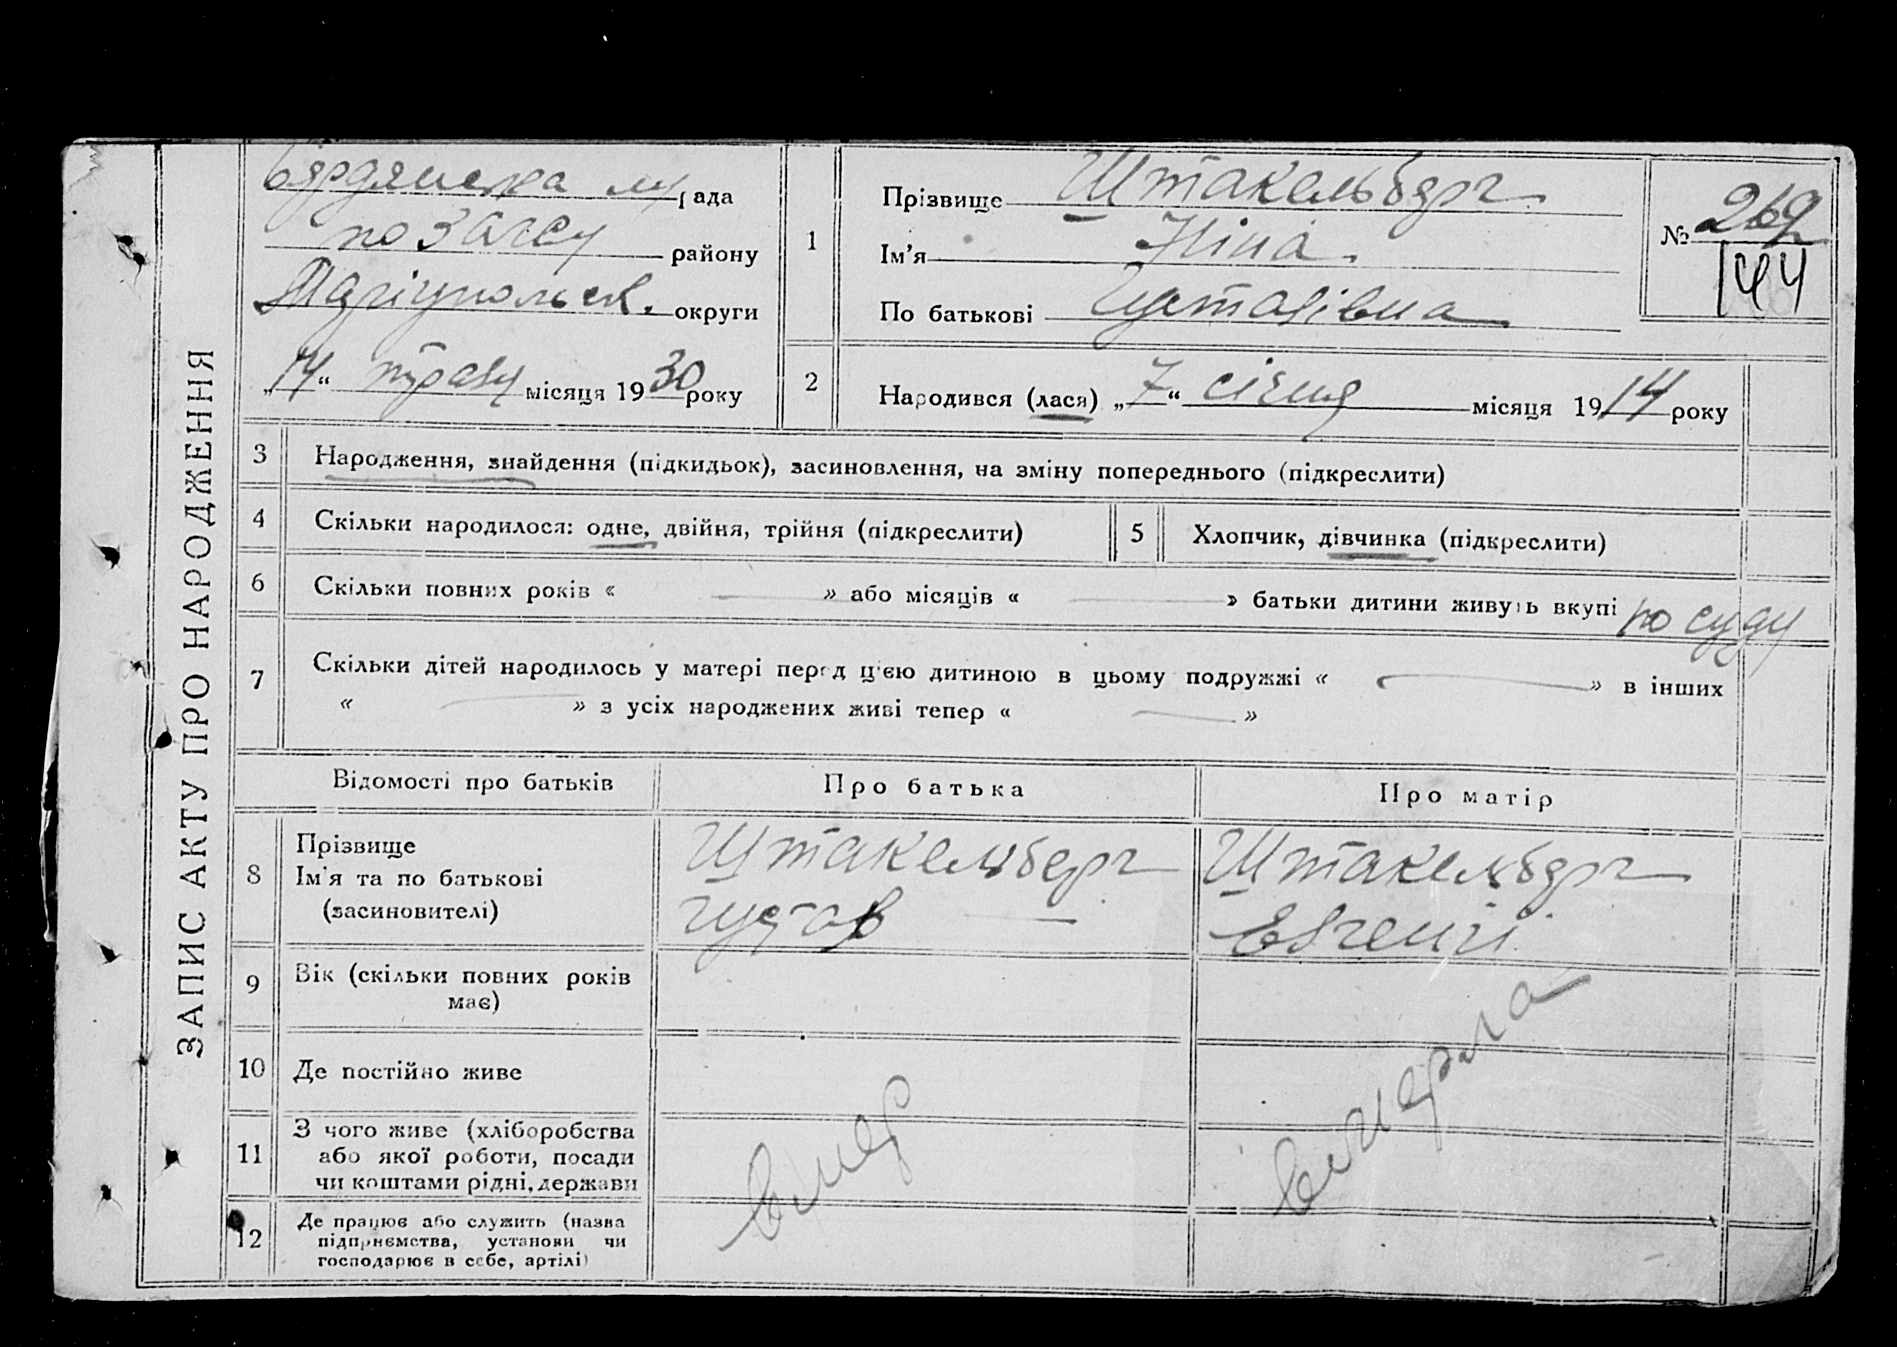 ЗАПИС АКТУ ПРО НАРОДЖЕННЯ
Бярдянська рада
по загсу району
Маріупольськ. округи
„14“ травн місяця 1930 року
1
Прізвище Штакельбярг
Ім’я Ніна.
По батькові Густавівна
№ 269
144
2
Народився (лася) „7“ січня місяця 1914 року
3 Народження, знайдення (підкидьок), засиновлення, на зміну попереднього (підкреслити)
4 Скільки народилося: одне, двійня, трійня (підкреслити)
5 Хлопчик, дівчинка (підкреслити)
6 Скільки повних років « — » або місяців « — » батьки дитини живуть вкупі по суду
7 Скільки дітей народилось у матері перед цією дитиною в цьому подружжі « — » в інших
« — » з усіх народжених живі тепер « — »
Відомості про батьків Про батька Про матір
8 Прізвище
Ім’я та по батькові
(засиновителі)
Штакельберг
Густав —
Штакельбярг
Евгений
9 Вік (скільки повних років
має)
10 Де постійно живе
11 З чого живе (хліборобства
або якої роботи, посади
чи коштами рідні, держави
12 Де працює або служить (назва
підприємства, установи чи
господарює в себе, артілі)
вмер
вмерла